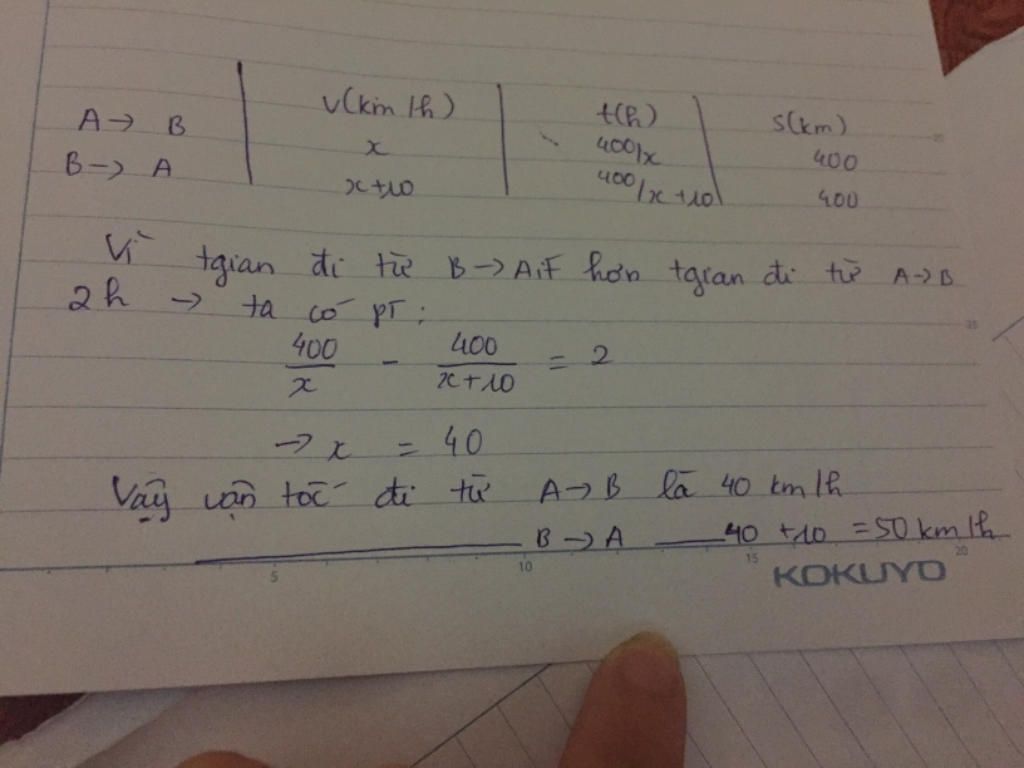 v(km/h) t(h) s(km)
A → B x 400/x 400
B → A x+10 400/x+10 400
Vì tgian đi từ B → A ít hơn tgian đi từ A→B
2h → ta có pt:
400/x - 400/x+10 = 2
→ x = 40
Vậy vận tốc đi từ A→B là 40 km/h
B → A 40 +10 = 50 km/h
5 10 15 20
KOKUYO